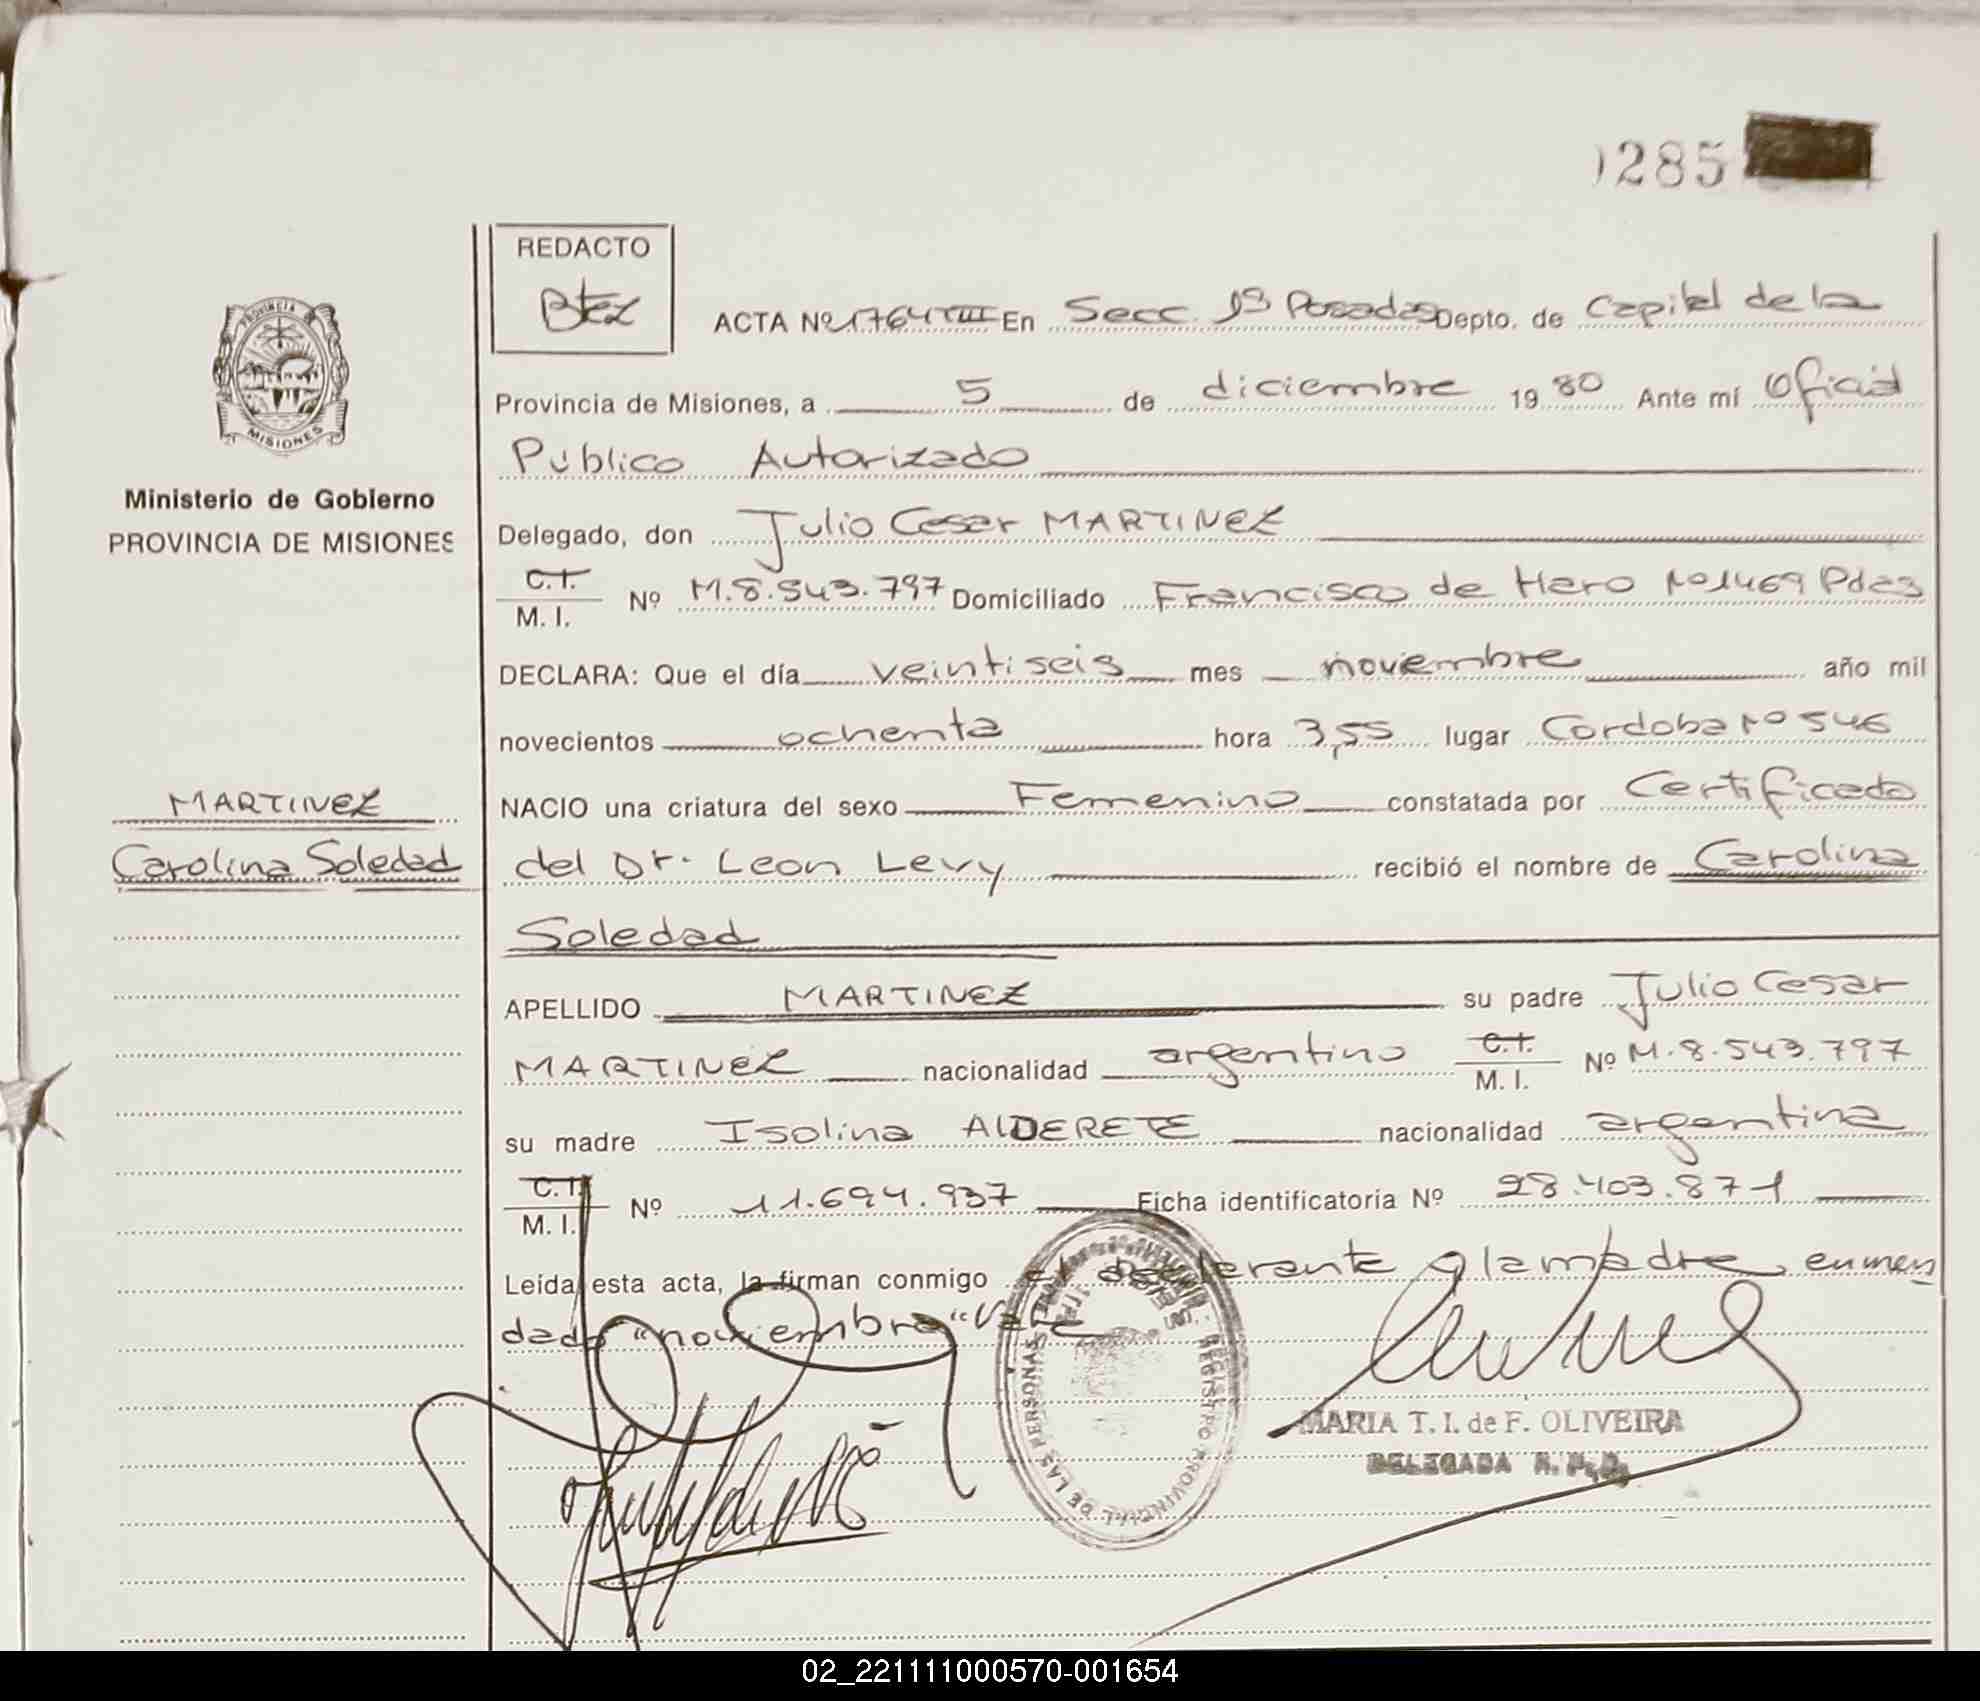 285
REDACTO
Btez
ACTA Nº 1764 TIII En Secc. 1ª Posadas Depto. de Capital de la
Provincia de Misiones, a 5 de diciembre 1980 Ante mí Oficial
Público Autorizado
PROVINCIA DE
MISIONES
Ministerio de Gobierno
PROVINCIA DE MISIONES
Delegado, don Julio Cesar MARTINEZ
C.I. M. I. Nº M.8.543.797 Domiciliado Francisco de Haro Nº1469 Pdas
DECLARA: Que el día veintiseis mes noviembre año mil
novecientos ochenta hora 3,55 lugar Cordoba Nº 546
MARTINEZ
Carolina Soledad
NACIO una criatura del sexo Femenino constatada por Certificado
del Dr. Leon Levy recibió el nombre de Carolina
Soledad
APELLIDO MARTINEZ su padre Julio Cesar
MARTINEZ nacionalidad argentino C.I. M. I. Nº M.8.543.797
su madre Isolina ALDERETE nacionalidad argentina
C.I. M. I. Nº 11.694.937 Ficha identificatoria Nº 28.403.871
Leída esta acta, la firman conmigo el declarante y la madre, enmen
dado "noviembre" Vale
REGISTRO PROVINCIAL DE LAS PERSONAS
MARIA T. I. de F. OLIVEIRA
DELEGADA R. P. P.
02_221111000570-001654